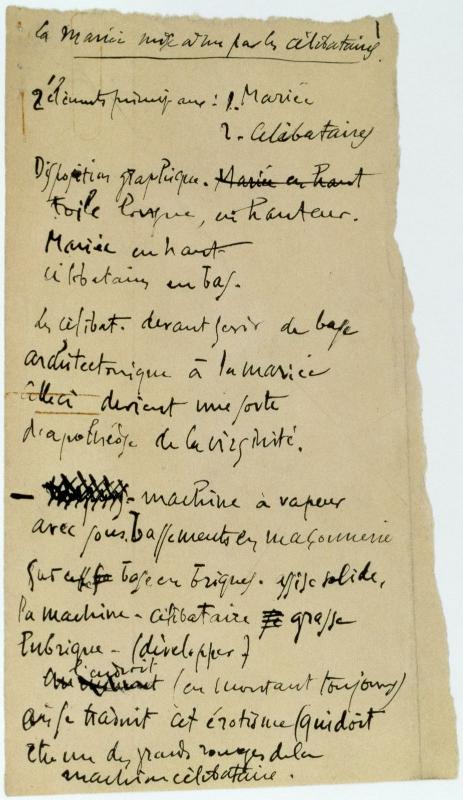 La Mariée mise à nu par les célibataires.
2 éléments principaux : 1. Mariée
2. Célibataires
Disposition graphique. Mariée en haut
Toile longue, en hauteur.
Mariée en haut
célibataires en bas.
Les célibat. devant servir de base
architectonique à la mariée
celle ci devient une sorte
d'apothéose de la virginité.
- machine à vapeur
avec soubassements en maçonnerie
Sur cette base en briques. assise solide,
la machine-célibataire grasse
lubrique - (développer)
l'endroit (en montant toujours)
où se traduit cet érotisme (qui doit
être un des grands rouages de la
machine célibataire.